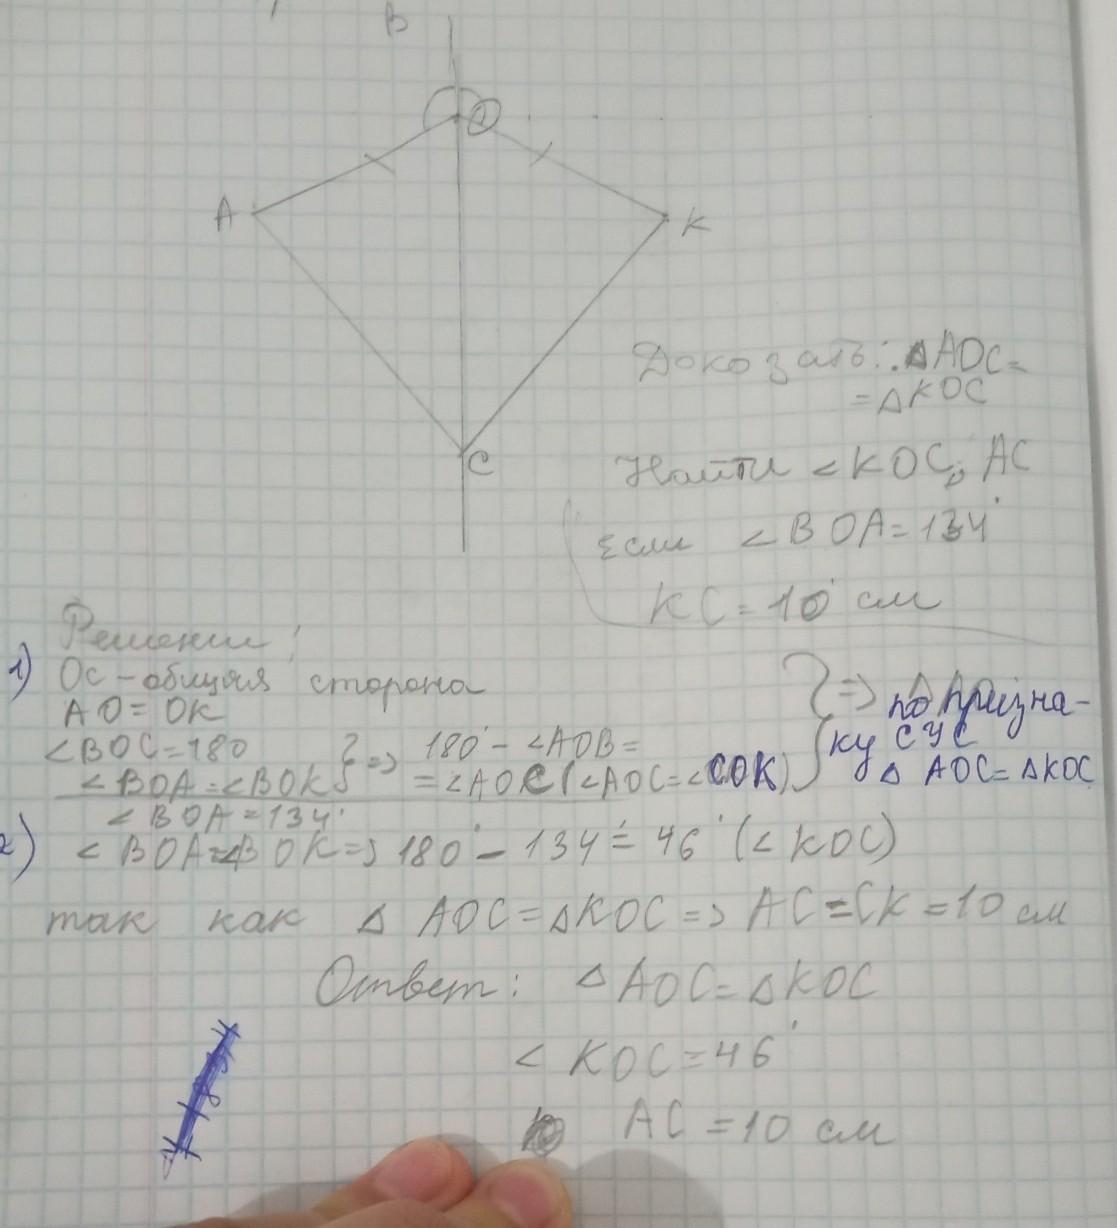 В
О
А
К
С
Докозать: △AOC=
=△KOC
Найти <KOC, AC
Если <BOA=134°
KC=10 см
Решении:
1) OC-общая сторона
AO=OK
<BOC=180
<BOA=<BOK} => 180°-<AOB=
=<AOC(<AOC=<COK)
} => по призна-
ку СУС
△ AOC=△KOC
<BOA=134°
2) <BOA=<BOK=> 180°-134°=46° (<KOC)
так как △ AOC=△KOC=> AC=CK=10 см
Ответ: △AOC=△KOC
<KOC=46°
AC=10 см